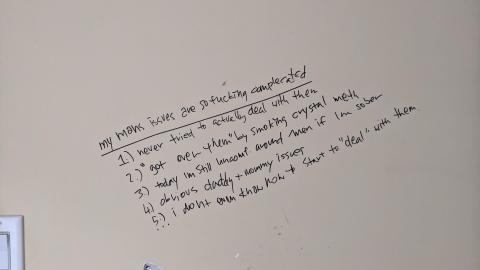 my mens issues are so fucking complecated
1.) never tried to actually deal with them
2.) "got over them" by smoking crystal meth
3.) today im still uncomf around men if im sober
4.) obvious daddy + mommy issues
5.) i dont even know how to start to "deal" with them
...